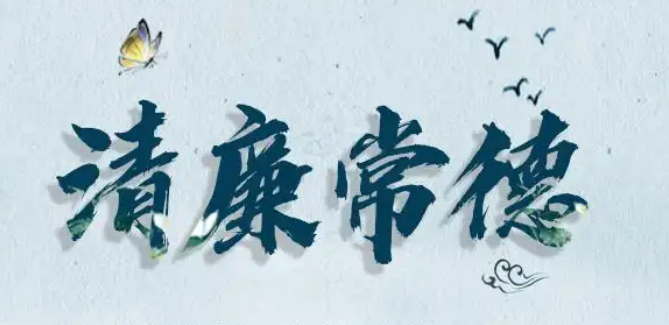 清廉常德